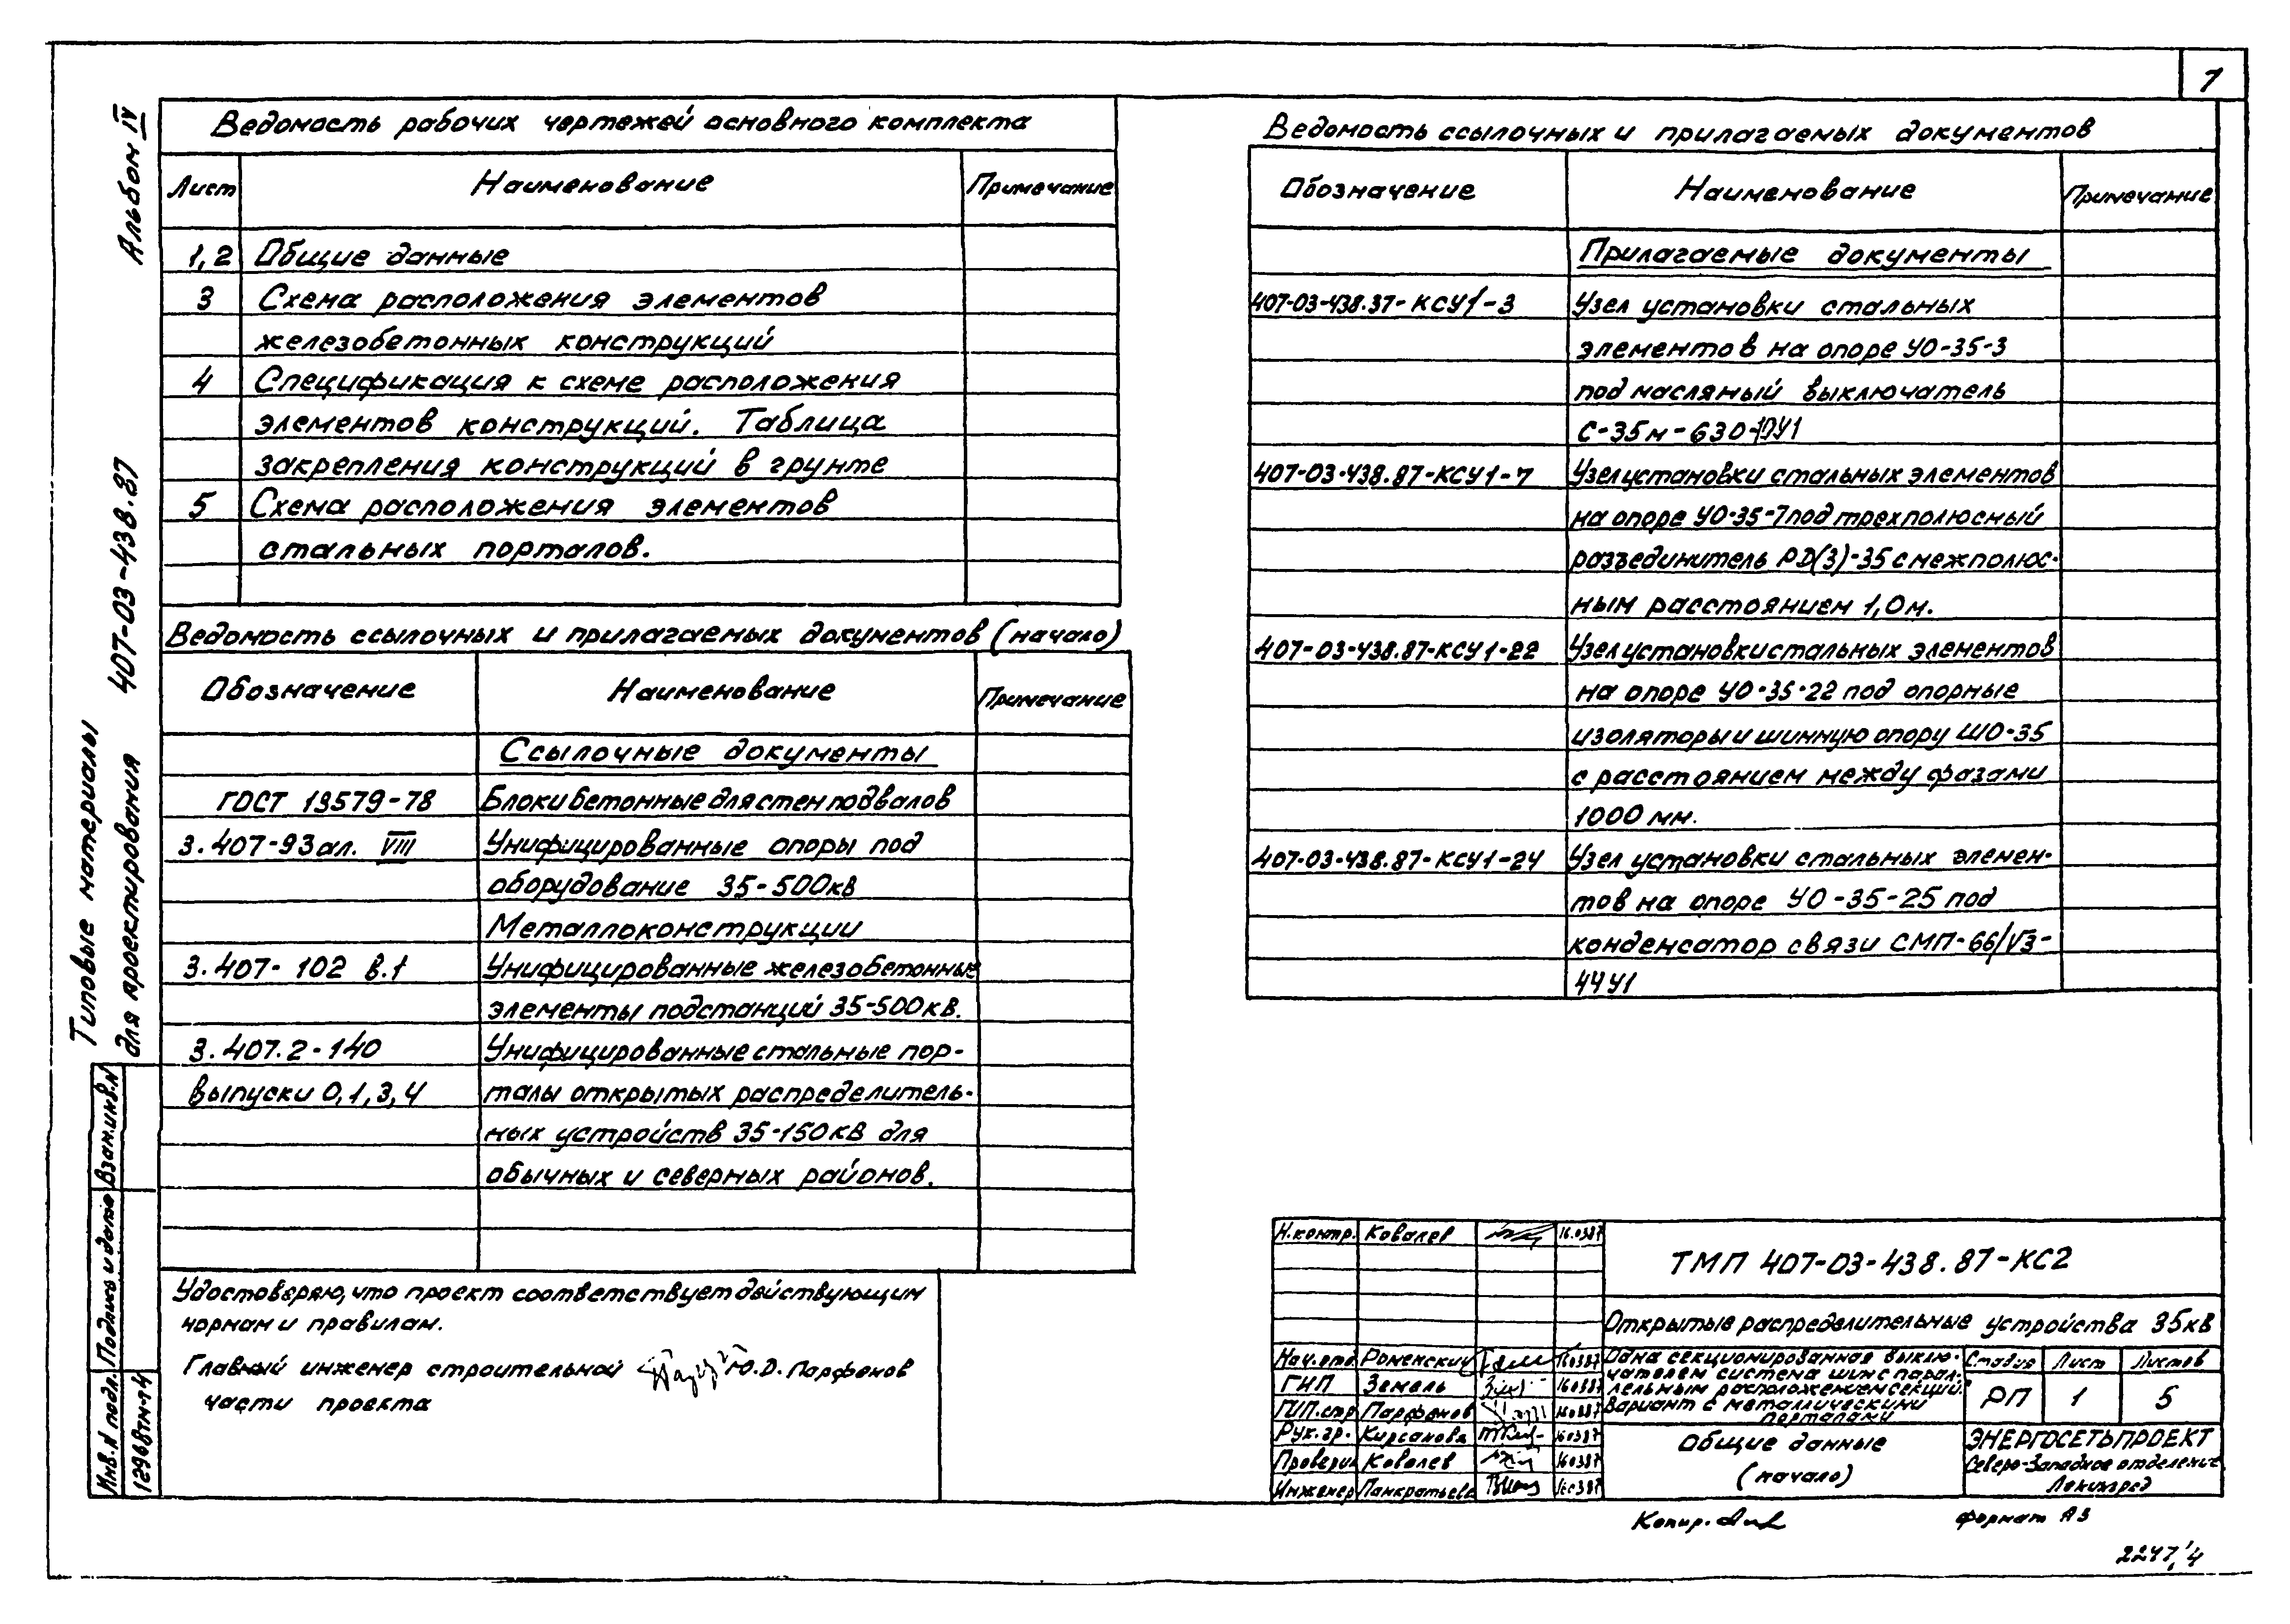 7
Альбом IV
407-03-438.87
Типовые материалы
для проектирования
Ведомость рабочих чертежей основного комплекта
Лист Наименование Примечание
1,2 Общие данные
3 Схема расположения элементов
железобетонных конструкций
4 Спецификация к схеме расположения
элементов конструкций. Таблица
закрепления конструкций в грунте
5 Схема расположения элементов
стальных порталов.
Ведомость ссылочных и прилагаемых документов (начало)
Обозначение Наименование Примечание
Ссылочные документы
ГОСТ 13579-78 Блоки бетонные для стен подвалов
3.407-93 ал. VIII Унифицированные опоры под
оборудование 35-500кв
Металлоконструкции
3.407-102 в.1 Унифицированные железобетонные
элементы подстанций 35-500кв.
3.407.2-140 Унифицированные стальные пор-
выпуски 0,1,3,4 талы открытых распределитель-
ных устройств 35-150кв для
обычных и северных районов.
Удостоверяю, что проект соответствует действующим
нормам и правилам.
Главный инженер строительной Ю.Д. Парфенов
части проекта
Взам.инв.N
Подпись и дата
Инв.N подл.
12968тм-т4
Ведомость ссылочных и прилагаемых документов
Обозначение Наименование Примечание
Прилагаемые документы
407-03-438.87-КСУ1-3 Узел установки стальных
элементов на опоре УО-35-3
под масляный выключатель
С-35м-630-10У1
407-03-438.87-КСУ1-7 Узел установки стальных элементов
на опоре УО-35-7 под трехполюсный
разъединитель РД(З)-35 с межполюс-
ным расстоянием 1,0м.
407-03-438.87-КСУ1-22 Узел установки стальных элементов
на опоре УО-35-22 под опорные
изоляторы и шинную опору ШО-35
с расстоянием между фазами
1000 мм.
407-03-438.87-КСУ1-24 Узел установки стальных элемен-
тов на опоре УО-35-25 под
конденсатор связи СМП-66/√3-
4ЧУ1
Н.контр. Ковалев 16.0387
ТМП 407-03-438.87-КС2
Открытые распределительные устройства 35кв
Нач.отд. Роменский 160387
ГИП Земель 160387
ГИП.стр Парфенов 160387
Рук.гр. Кирсанова 160387
Проверил Ковалев 160387
Инженер Панкратьева 160387
Одна секционированная выклю-
чателем система шин с парал-
лельным расположением секций.
Вариант с металлическими
порталами
Стадия Лист Листов
РП 1 5
Общие данные
(начало)
ЭНЕРГОСЕТЬПРОЕКТ
Северо-Западное отделение
Ленинград
Копир.
формат А3